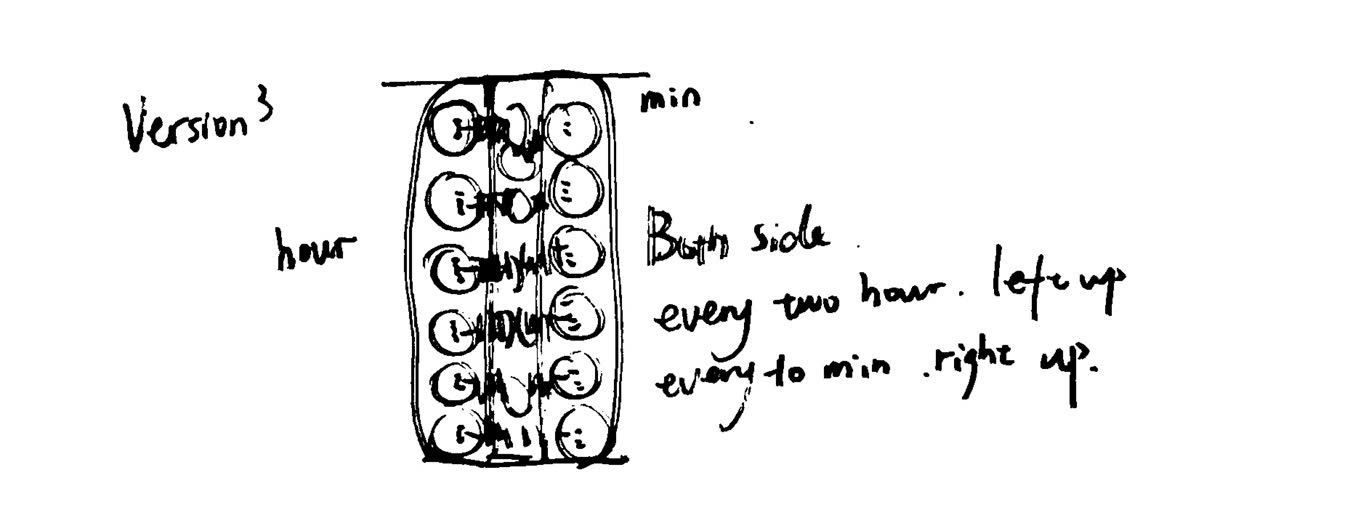 Version 3
min
hour
Both side
every two hour. left up
every 10 min .right up.